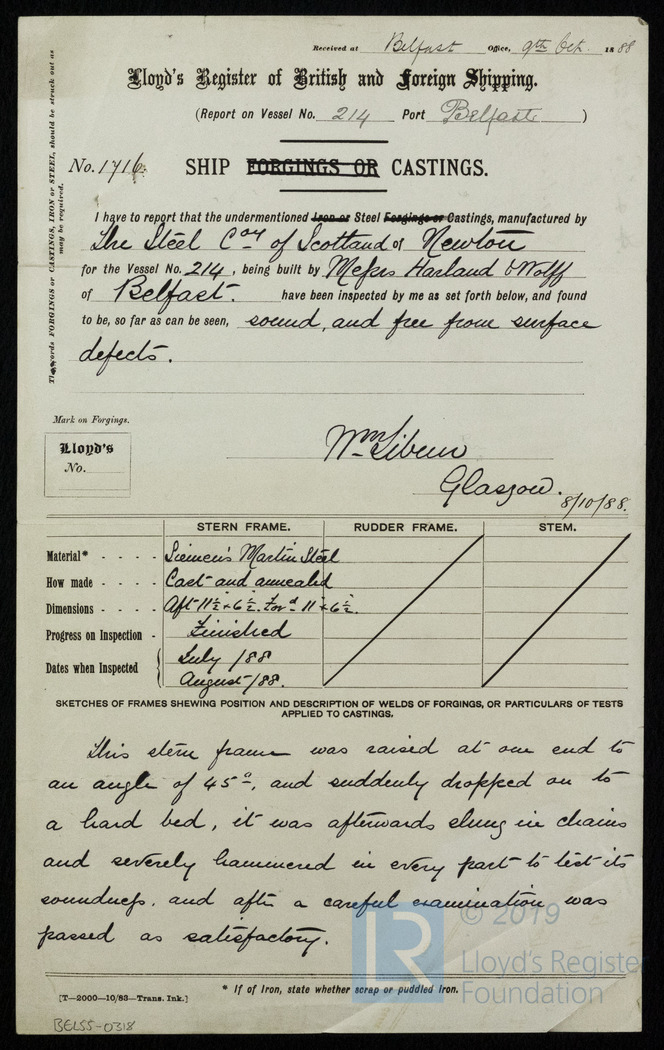 Received at Belfast Office, 9th Oct. 1888
Lloyd's Register of British and Foreign Shipping.
(Report on Vessel No. 214 Port Belfast )
No. 1716. SHIP FORGINGS OR CASTINGS.
The words FORGINGS or CASTINGS, IRON or STEEL, should be struck out as
may be required.
I have to report that the undermentioned Iron or Steel Forgings or Castings, manufactured by
The Steel Coy of Scotland of Newton
for the Vessel No. 214, being built by Messrs Harland & Wolff
of Belfast. have been inspected by me as set forth below, and found
to be, so far as can be seen, sound, and free from surface
defects.
Mark on Forgings.
Lloyd's
No.
Wm
Glasgow.
8/10/88.
STERN FRAME. RUDDER FRAME. STEM.
Material* - - - - Siemen's Martin Steel
How made - - - - Cast and annealed
Dimensions - - - - Aft 11½ × 6½. Ford 11 × 6½.
Progress on Inspection - Finished
Dates when Inspected { July /88
August /88.
SKETCHES OF FRAMES SHEWING POSITION AND DESCRIPTION OF WELDS OF FORGINGS, OR PARTICULARS OF TESTS
APPLIED TO CASTINGS.
This stern frame was raised at one end to
an angle of 45°, and suddenly dropped on to
a hard bed, it was afterwards slung in chains
and severely hammered in every part to test its
soundness, and after a careful examination was
passed as satisfactory.
* If of Iron, state whether scrap or puddled Iron.
[T—2000—10/83—Trans. Ink.]
BEL55-0318
© 2019
LR
Lloyd's Register
Foundation